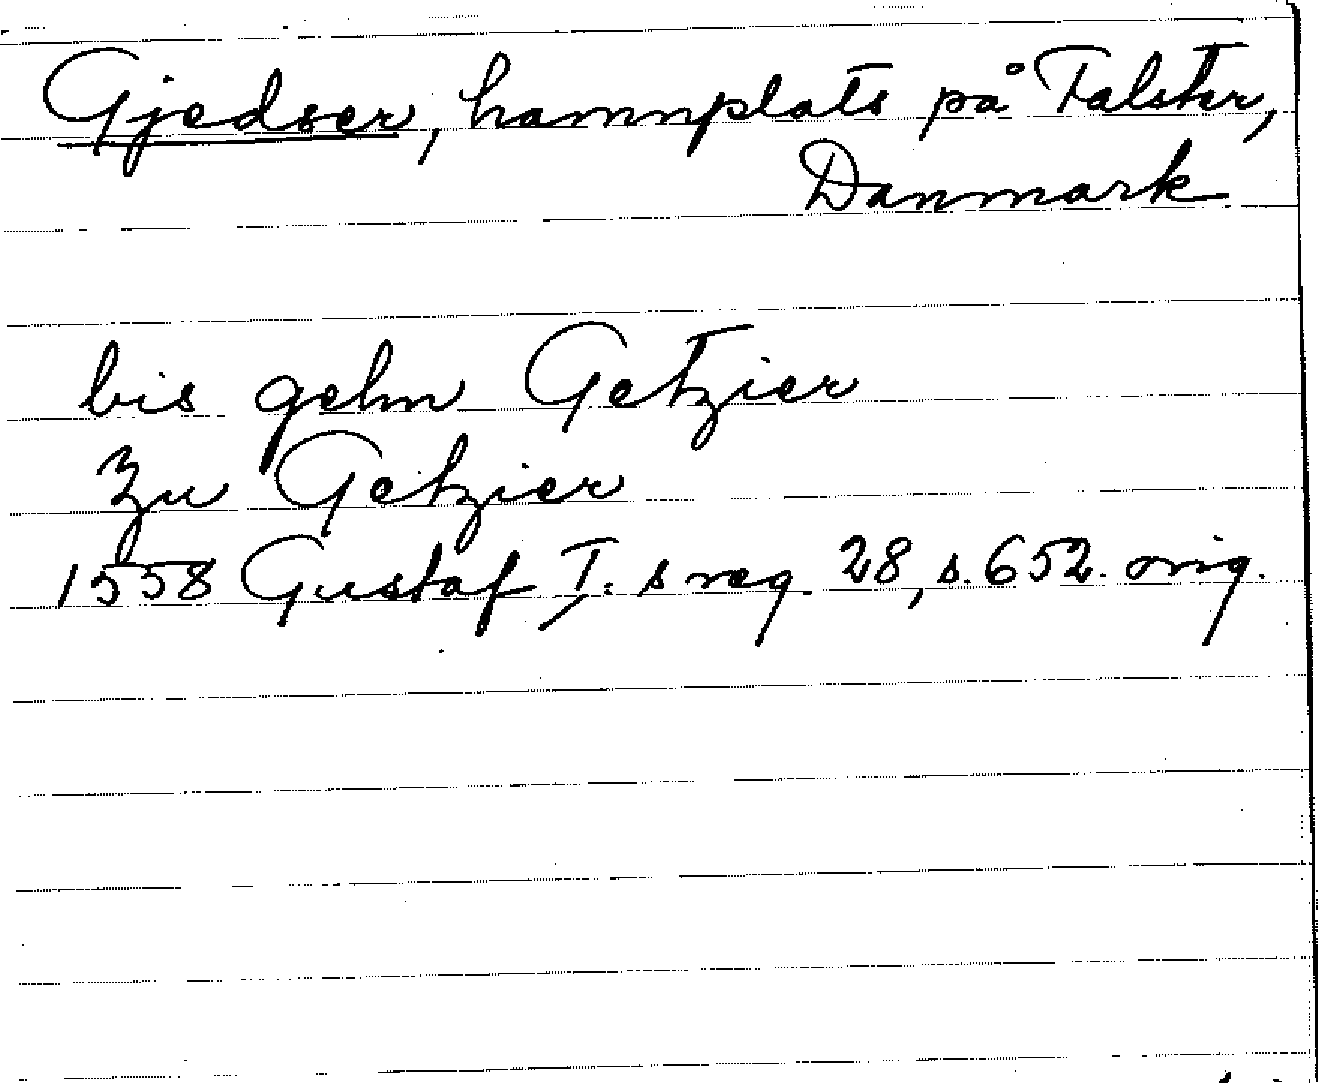 Gjedser, hamnplats på Falster,
Danmark
bis gehn Getzier
Zu Getzier
1558 Gustaf I:s reg. 28, s. 652. orig.